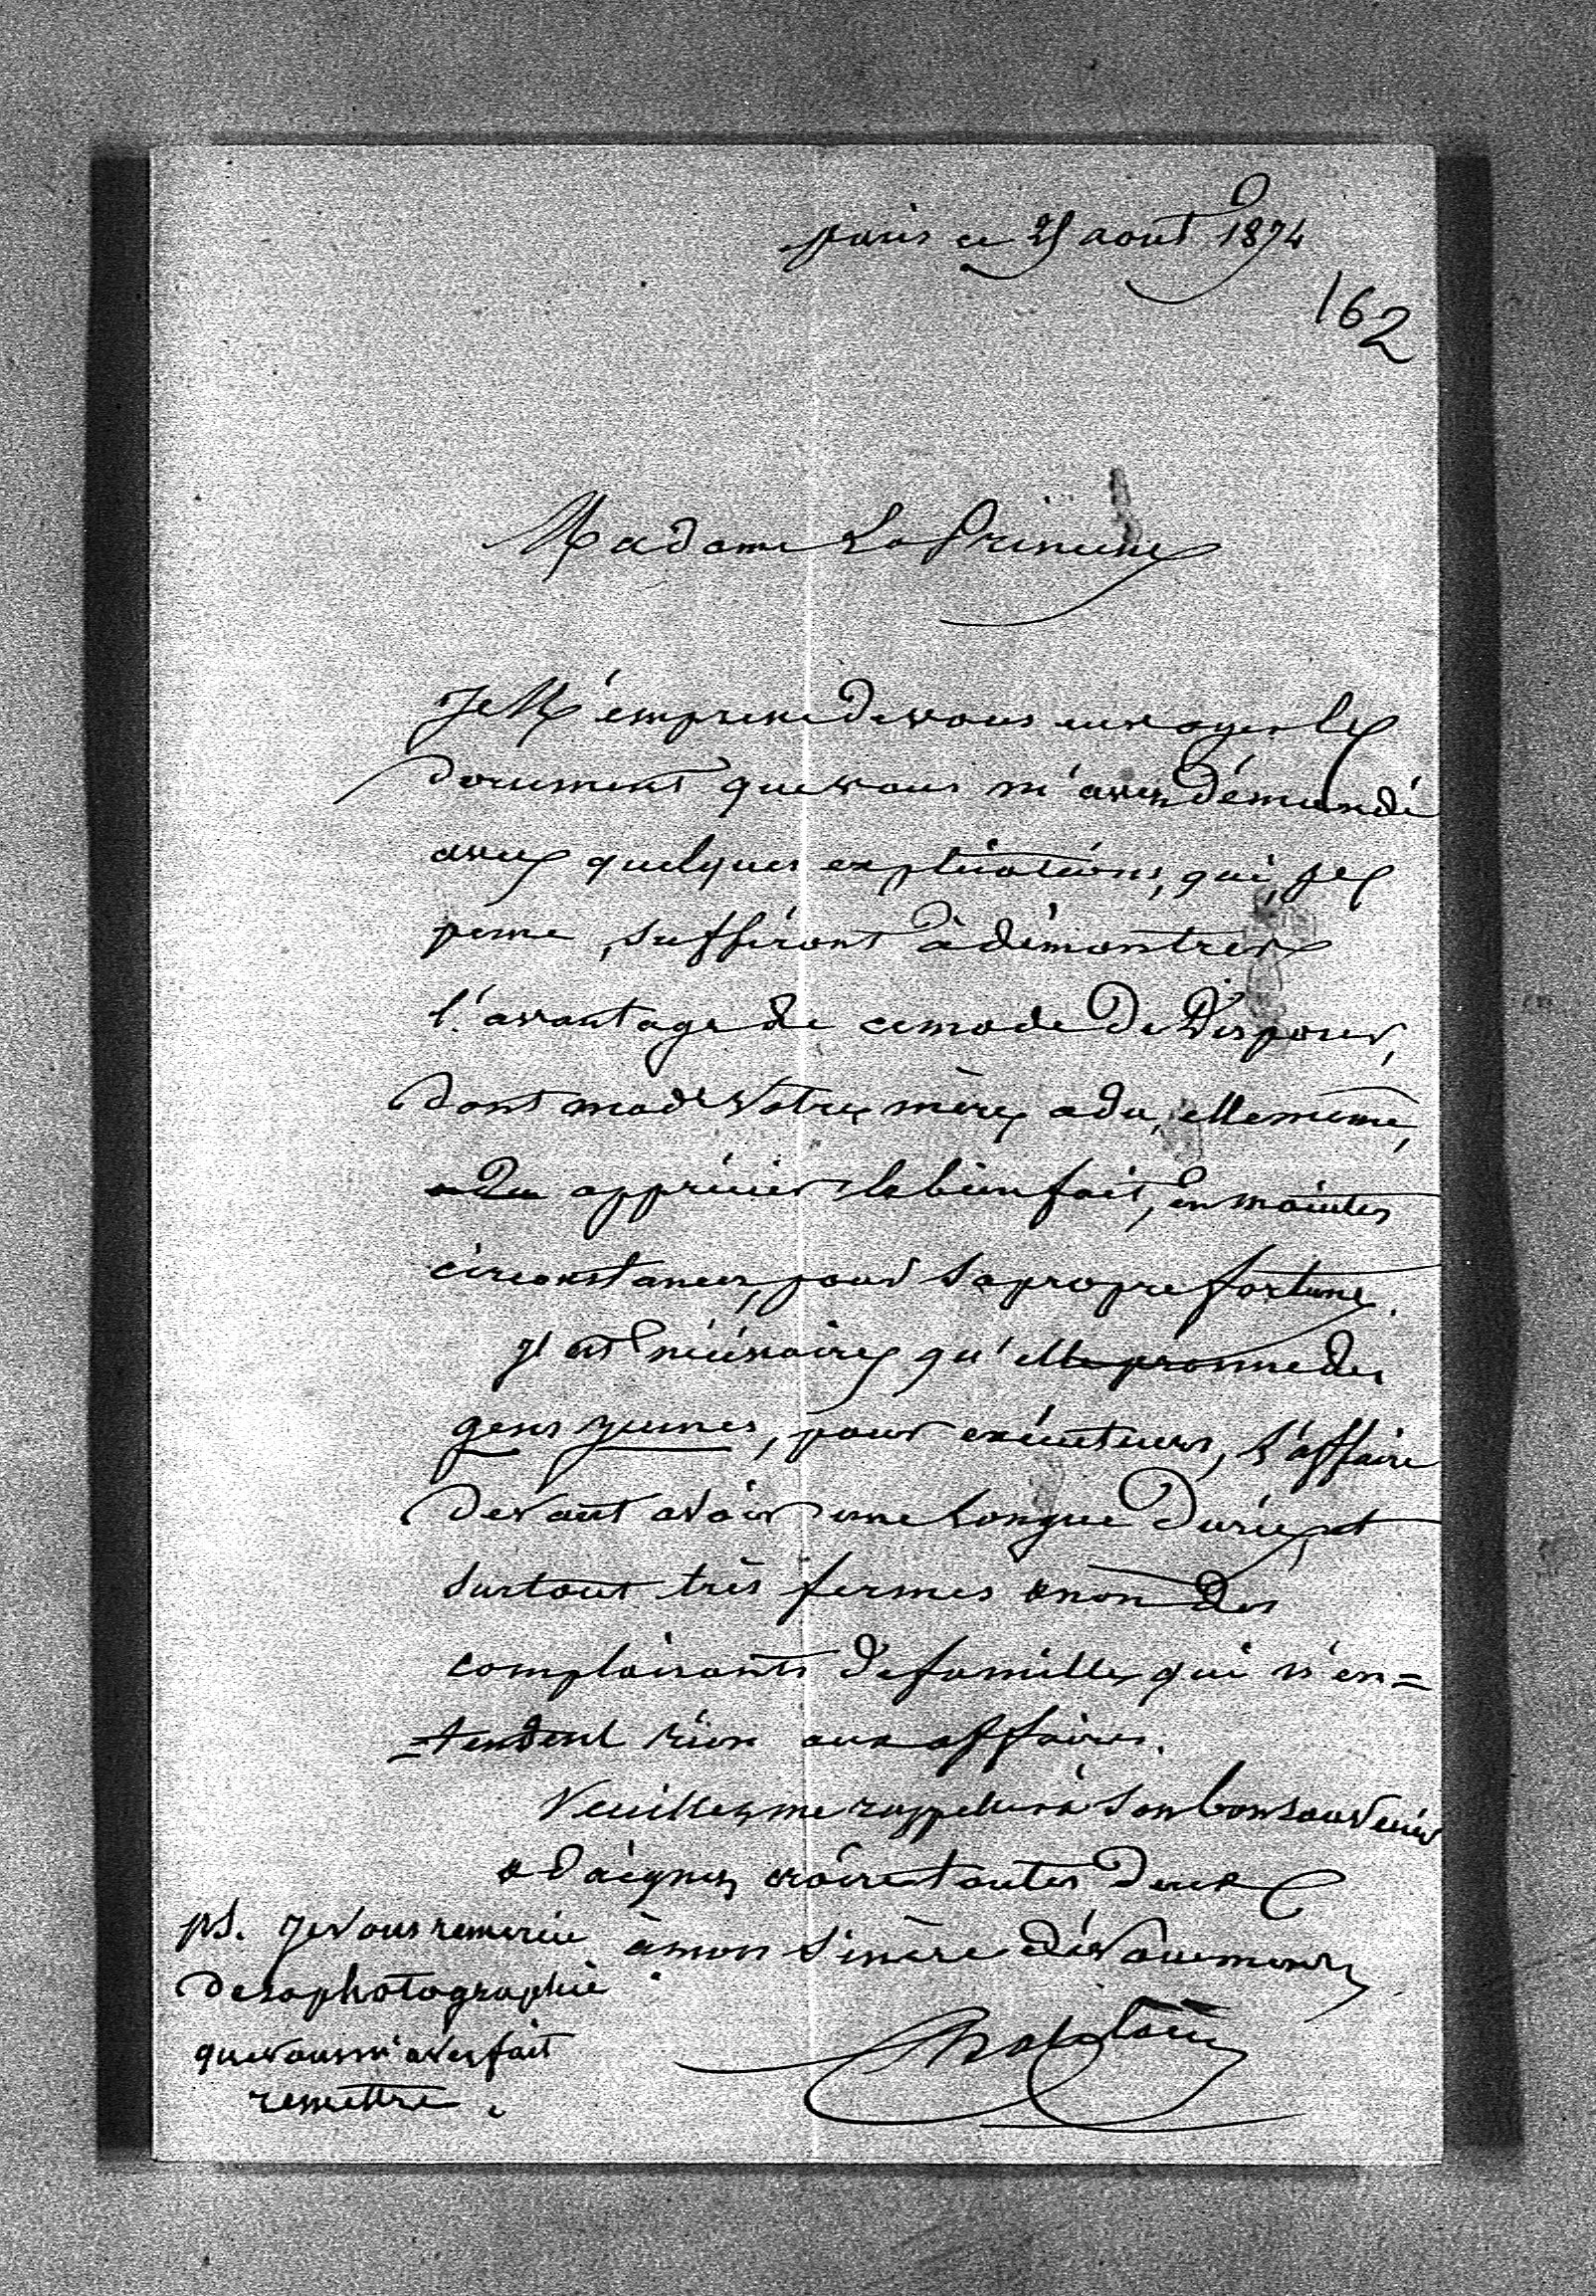 paris ce 25 aout 1874
162
Madame La Princesse
Je M'empresse de vous envoyer le
document que vous m'avez démandé
avec quelques explications, qui, je
pense, suffiront à démontrer
l'avantage de ce mode de Disposer,
dont made Votre mère a du, elle meme,
apprécier le bienfait, en maintes
circonstances, pour Sa propre fortune.
Il est nécésaire qu'elle prenne des
gens jeunes, pour exécuteurs, L'affaire
devant avoir une longue durée, et
Surtout très fermes & non des
complaisants de famille qui n'en=
=tendent rien aux affaires.
Veuillez me rappeller à Son bon Souvenir
& daignez croire toutes deux
à mon Sincère dévouement
ps. Je vous remercie
de sa photographie
que vous m'avez fait
remettre.